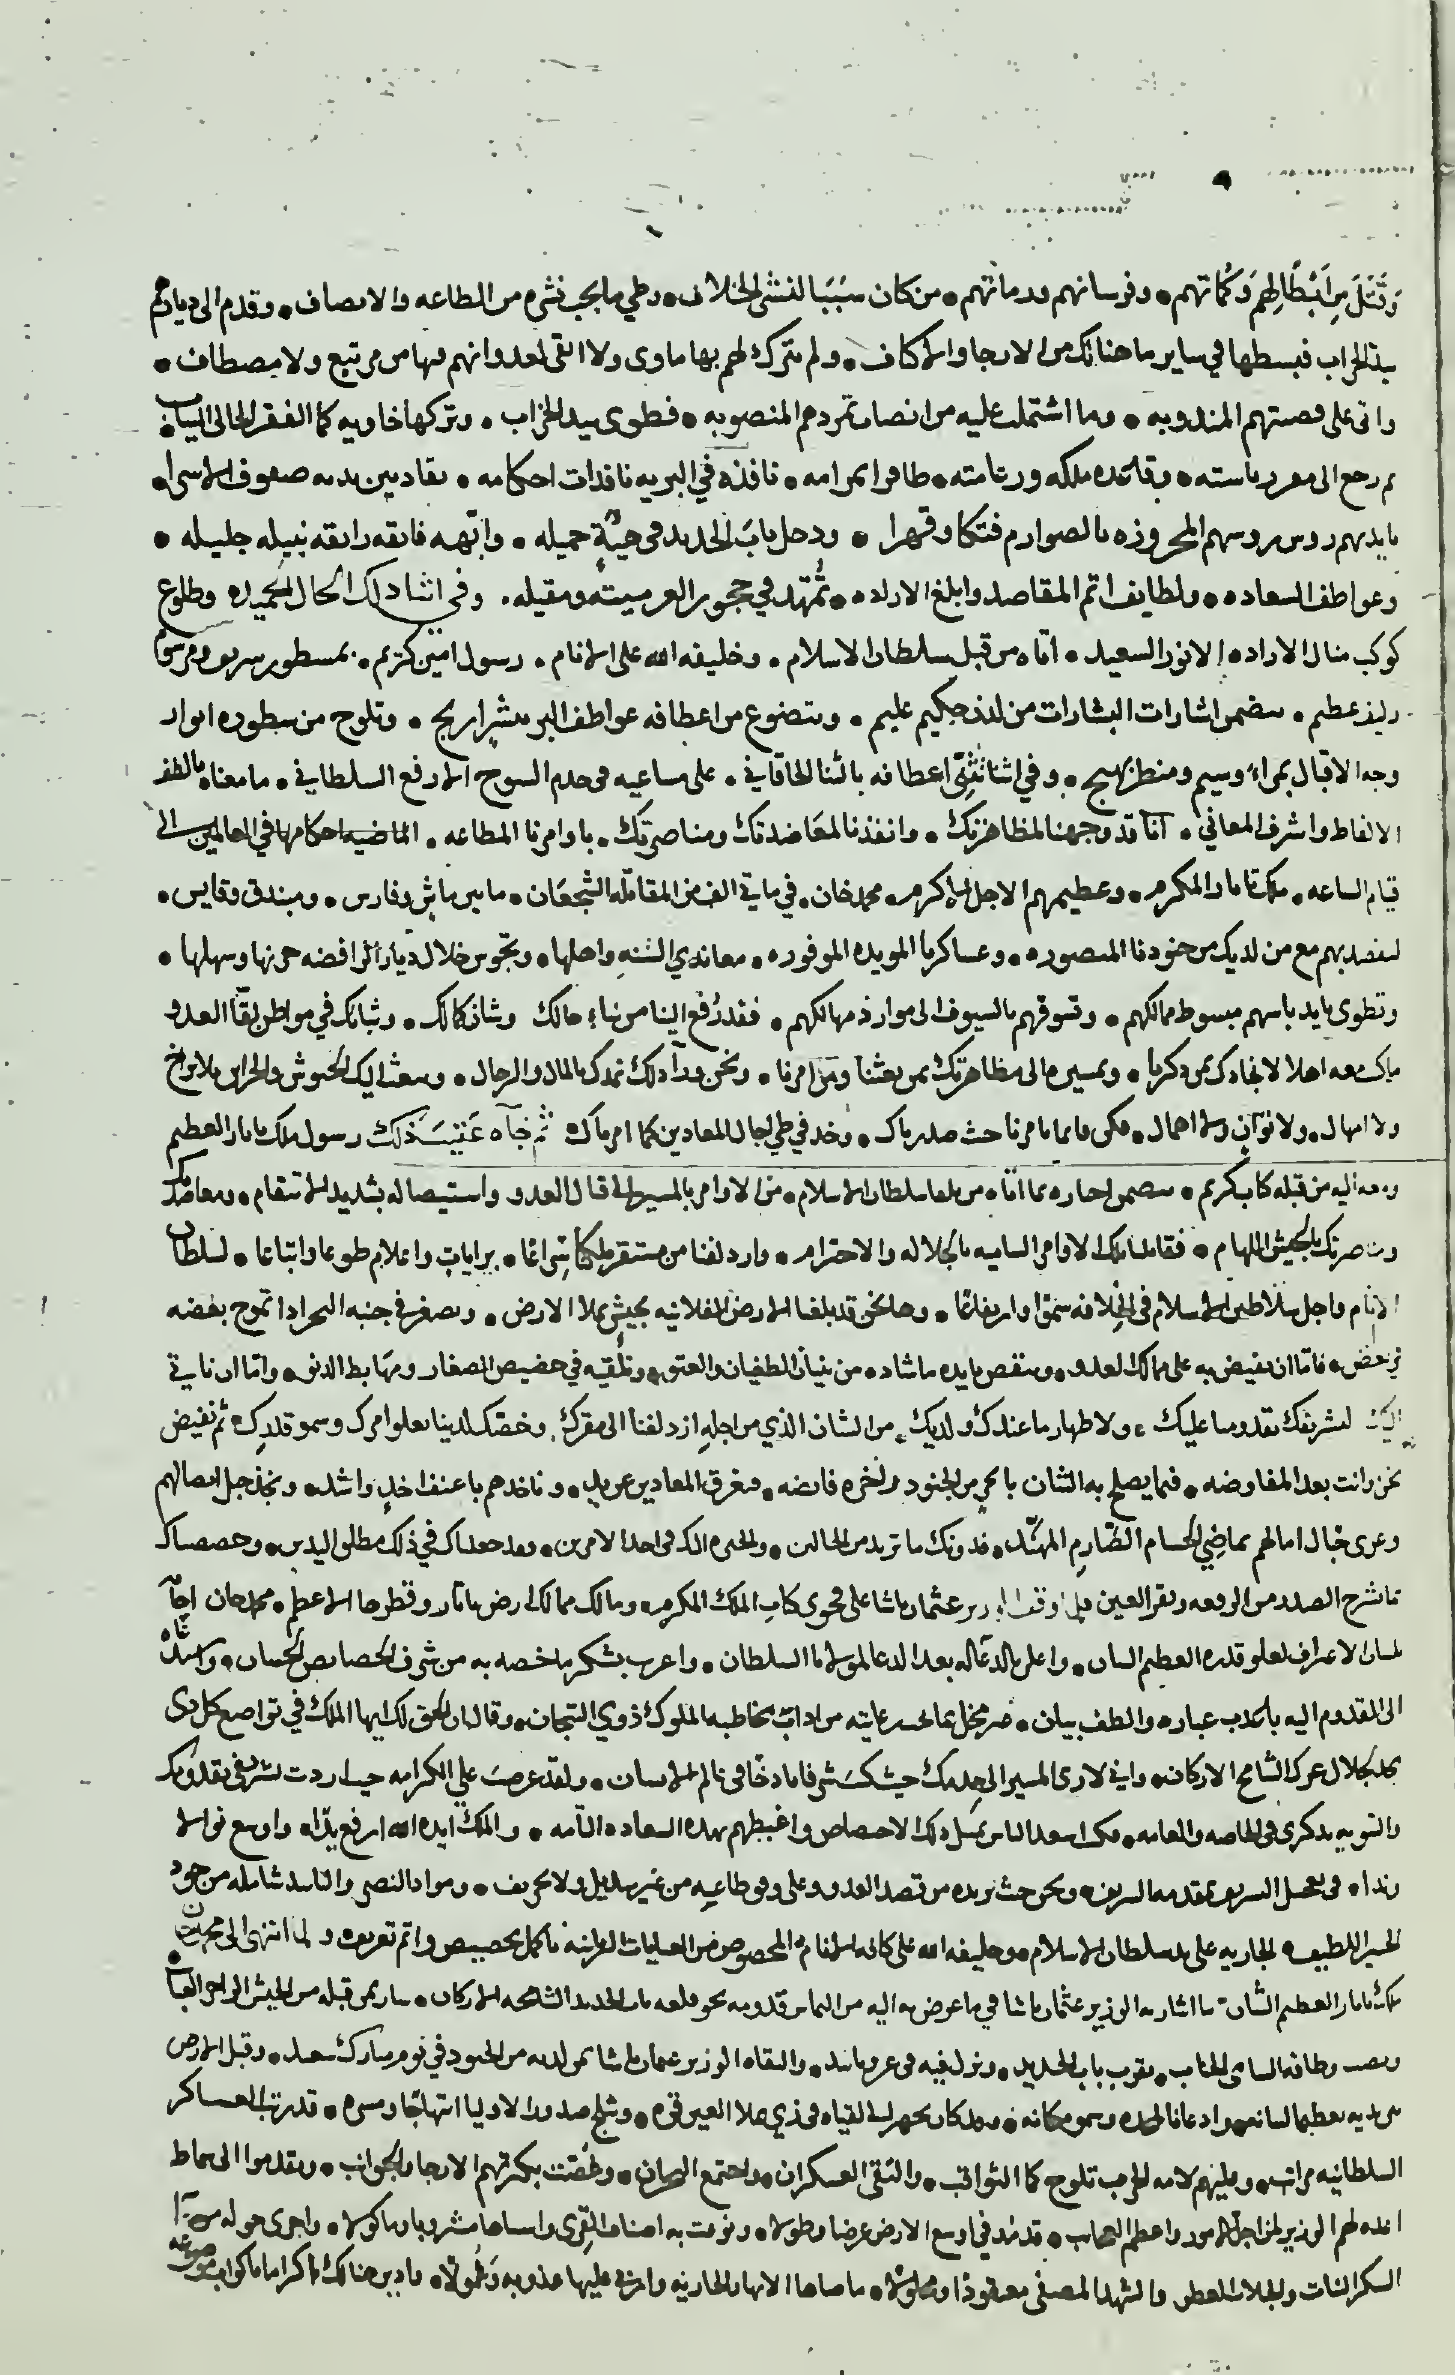 وَقَتَلَ مِن اَبْطَالِهم وَكُمَاتهم • وفرسانهم ورماتهم • من كان سَبَبًا لنشر الخلاف • وطي ما يجب نشره من الطاعه والانصاف • وقدم الى ديارهم
بيد الخراب فبسطها في ساير ما هنالك من الارجا والاكناف • ولم يترك لهم بها ماوى ولا ابقى لعدوانهم فيها من مرتبع ولا مصطاف •
واتى على قصبتهم المندوبه • وما اشتملت عليه من انصاب تمردهم المنصوبه • فطوى بيد الخراب • وتركها خاويه كالقفر الخالى اليباب
ثم رجع الى مقر رياسته • وقاعده ملكه وزعامته • ظافرا بمرامه • نافذه في البريه نافذات احكامه • تقاد بين يديه صفوف الاسرا •
بايديهم روس روسهم المحزوزه بالصوارم فتكا وقهرا • ودخل باب الحديد فى هيئة جميله • وابّهه فايقه رايقه نبيله جليله •
وعواطف السعاده • ولطايف اتم المقاصد وابلغ الاراده • تُمهّد في حجور العز مبيته ومقيله • وفي اثنا ذلك الحال الحميده وطلوع
كوكب منال الاراده الانور السعيد • اتاه من قبل سلطان الاسلام • وخليفه الله على الانام • رسول امين كريم • بمسطور شريف ومرسوم
منيف عظيم • يتضمن اشارات البشارات من لدن حكيم عليم • ويتضوع من اعطافه عواطف البر بنشر اريج • وتلوح من سطوره انوار
وجه الاقبال بمراءٍ وسيم ومنظر بهيج • وفي اثنا تثنّى اعطافه بالثنا الخاقاني • على مساعيه فى خدم السوح الارفع السلطاني • ما معناه بالطف
الالفاظ واشرف المعاني • انا قد وجهنا لمظاهرتك • وانفذنا لمعاضدتك ومناصرتك • باوامرنا المطاعه • الماضيه احكامها في العالمين الى
قيام الساعه • ملك تاتار المكرم • وعظيمهم الاجل الاكرم • محمد خان • في مايتي الف من المقاتله الشجعان • ما بين ماشٍ وفارس • ومبندق وقايس •
لتقصد بهم مع من لديك من جنودنا المنصوره • وعساكرنا المويده الموفوره • معاندي السنهِ واهلها • وتجوس خلال ديار الرافضه حزنها وسهلها •
وتطوى بايد باسهم مبسوط ممالكهم • وتسوقهم بالسيوف الى موارد مهالكهم • فقد رُفع الينا من نباءِ حالك وشان كمالك • وثباتك في مواطن لقا العدو
ما كنت معه اهلا لانجادك بمن ذكرنا • وتمسير ما الى مظاهرتك بمن بعثنا ومَن امرنا • ونحن ورا ذلك نمدك بالمال والرجال • ونبعث اليك الجيوش والخزاين بلا تراخ
ولا امهال • ولا توانٍ ولا اهمال • فكن قايما بامرنا حيث صدرناك • وخذ في طي اجال المعادين كما امرناك ثم جآه عَقيبَ ذلك رسول ملك تاتار العظيم
ومعه اليه من قبله كتاب كريم • يتضمن اخباره بما اتاه من تلقا سلطان الاسلام • من الاوامر بالمسير الى قتال العدو واستيصاله بشديد الانتقام • ومعاضدتك
ومناصرتك بالجيش اللهام • فقابلنا تلك الاوامر الساميه بالجلاله والاحترام • وازدلفنا من مستقر ملكنا سِراعًا • برايات واعلام طوعا واتباعا • لسلطان
الانام واجل سلاطين الاسلام فى الخلافه سموّا وارتفاعًا • وها نحن قد بلغنا الارض الفلانيه بجيش يملا الارض • ويصغر في جنبه البحر اذا تموج بعضه
في بعض • فاما ان نفيض به على ممالك العدو • وننقض بايده ما شاده • من بنيان الطغيان والعتو • ونلقيه في حضيض الصغار ومهَابط الدنو • واما ان ناتي
اليك لنشريفك بقدومنا عليك • ولاظهار ما عندك ولديك • من الشان الذي من اجلهِ ازدلفنا الى مقرك • وخصّك لدينا بعلو امرك وسمو قدرك • ثم نفيض
نحن وانت بعد المفاوضه • فيما يصلح به الشان بابحر من الجنود زاخره فايضه • فنغرق المعادين عن يد • وناخذهم باعنف اخذٍ واشده • ونجذ حبل اتصالهم
وعرى حبال امالهم بماضِي الحسام الصّارمِ المهنّد • فدونك ما تريد من الحالين • والخيره اليك فى احد الامرين • وقد جعلناك في ذلك مطلق اليدين • وخصصناك
بما شرح الصدر من الرفعه وتقر العين فلما وقف الوزير عثمان باشا على فحوى كتاب الملك المكرم • ومالك ممالك ارض تاتار وقطرها الاعظم • محمد خان اجاب
بلسان الاعتراف لعلو قدره العظيم الشان • واعلن بالدعا له بعد الدعا لمولانا السلطان • واعرب بشكر ما خصه به من شرف الخصايص الحسان • واستدعاه
الى القدوم اليه باعذب عباره والطف بيان • غير مخل بما يحسن رعايته من اداب مخاطبه الملوك ذوي التيجان • وقال ان يحق لك ايها الملك في تواضع كل ذى
مجد لجلال عزك الشامخ الاركان • واني لارى المسير الى خدمتك حيث كنت شرفا باذخًا فى عالم الانسان • ولقد عرضت علي الكرامه حيث اردت تشريفى بقدومك
والتنويه بذكرى فى الخاصه والعامه • فكنت اسعد الناس بمثل ذلك الاختصاص واغبطهم بهذه السعاده التامه • والملك ايده الله ارفع يدًا • واوسع نوالا
وندا • فى تعجيل التشريف بقدمه الشريفه • ونحن حيث يريده من قصد العدو وعلى وفق طاعته من غير تبديل ولا تحريف • ومواد النصر والتاييد شامله من جود
الخبير اللطيف • الجاريه على يد سلطان الاسلام • وخليفه الله على كافه الانام • المخصوص من العنايات الربانيه باكمل تخصيص واتم تعريف • ولما انتهى الى محمد خان
ملك تاتار العظيم الشان • ما اشار به الوزير عثمان باشا في ما عرض به اليه من التماس قدومه نحو قلعه باب الحديد الشامخه الاركان • سار بمن قبله من الجيش الزاخر العباب
ونصب وطاقه السامى الجناب • بقرب باب الحديد • ونزل فيه فى عز وتاييد • والتقاه الوزير عثمان باشا بمن لديه من الجنود في يوم مبارك سعيد • وقبل الارض
بين يديه تعظيما لشانه واذعانا لمجده وسمو مكانه • وقد كان تجهز للقياه فى زي يملا العين قره • ويثلج صدور الاوليا ابتهاجًا ومسره • قد رتب العساكر
السلطانيه مراتب • وعليهم لامه الحرب تلوح كالثواقب • والتقى العسكران • واجتمع البحران • وغُصّت بكثرتهم الارجا والجوانب • وتقدموا الى سماط
اعده لهم الوزير من اجل الامور واعظم العجايب • قد مُد في اوسع الارض عرضا وطولا • ونوعت به اصناف القِرى واسبابها مشروبا وماكولا • واجرى حوله من
السكر النبات والجلاب العطر والشهد المصفى معقودا ومحلولا • ما ضاها الانهار الجاريه وارخى عليها عذوبه وشمولا • وادير هنالك اكراما باكواب موضوعه